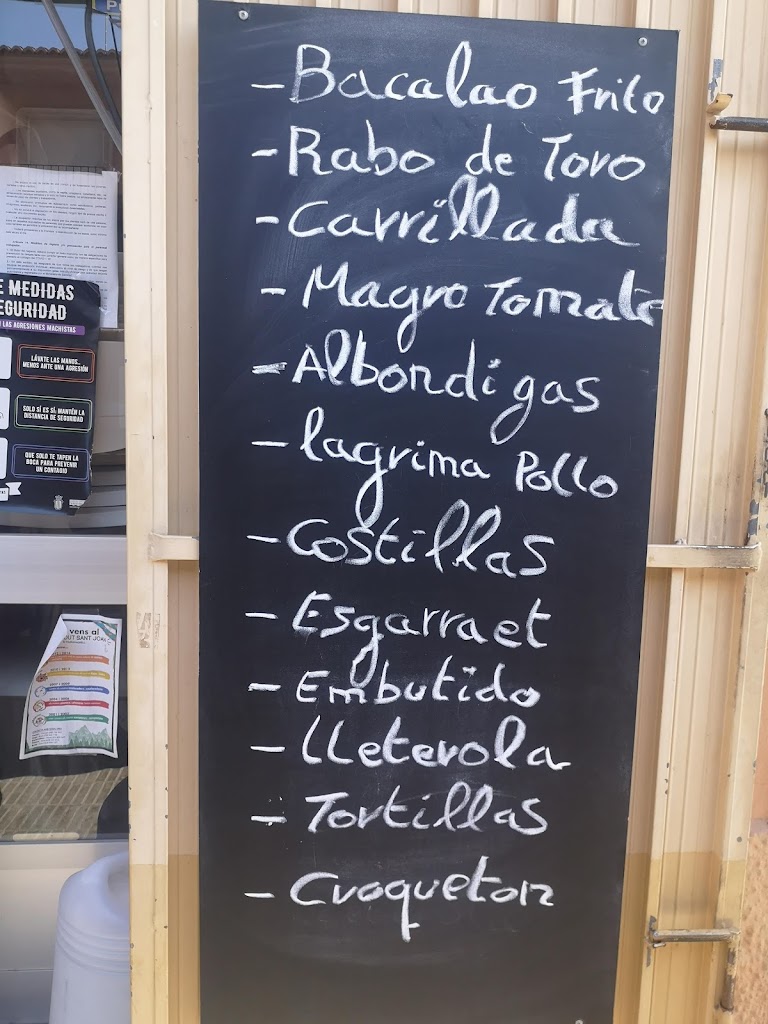 - Bacalao Frito
- Rabo de Toro
- Carrillada
- Magro Tomate
- Albondigas
- lagrima Pollo
- Costillas
- Esgarraet
- Embutido
- LLeterola
- Tortillas
- Croqueton
E MEDIDAS
EGURIDAD
LAS AGRESIONES MACHISTAS
LÁVATE LAS MANOS...
MENOS ANTE UNA AGRESIÓN
SOLO SÍ ES SÍ: MANTÉN LA
DISTANCIA DE SEGURIDAD
QUE SOLO TE TAPEN LA
BOCA PARA PREVENIR
UN CONTAGIO
vens al
UT SANT JOA